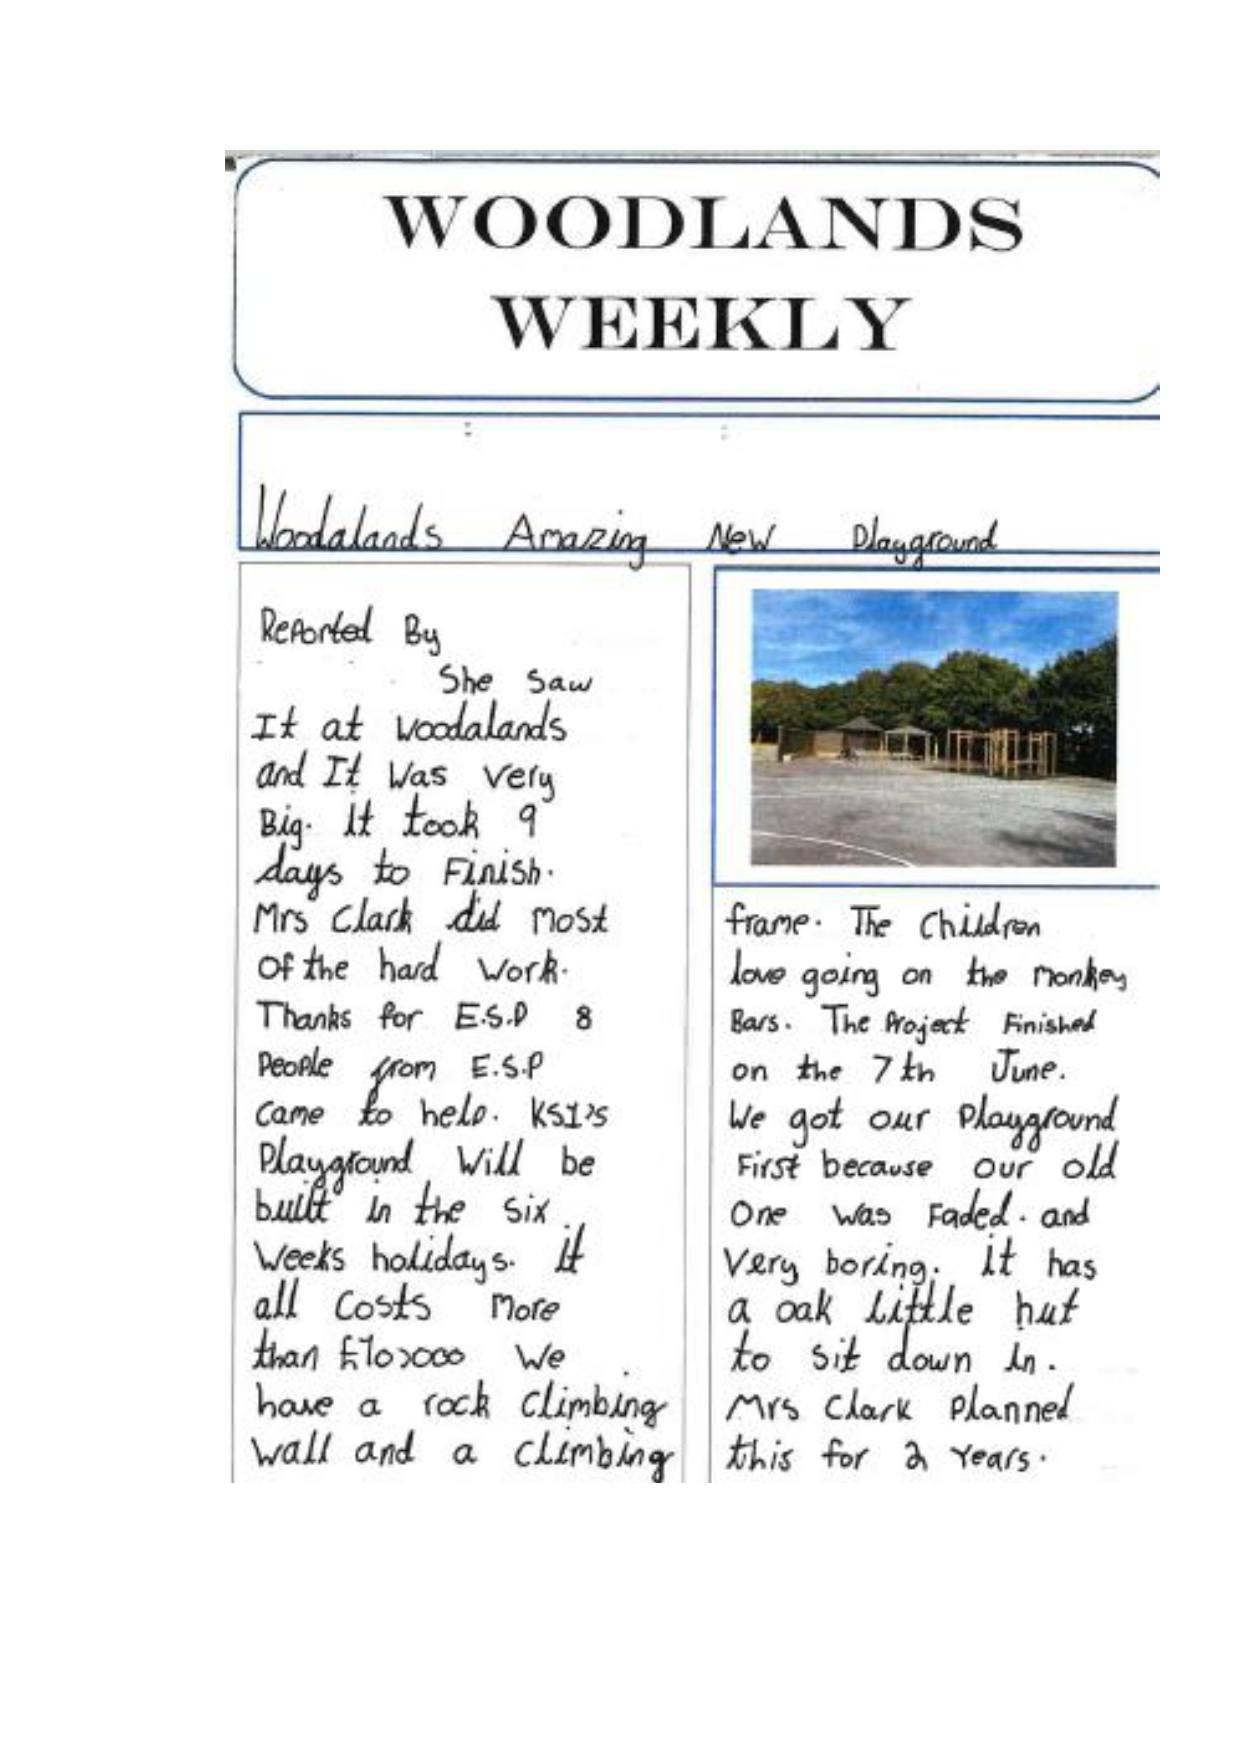 WOODLANDS
WEEKLY
Woodalands Amazing New Playground
Reported By
She Saw
It at Woodalands
and It Was very
Big. it took 9
days to Finish.
Mrs Clark did most
Of the hard work.
Thanks for E.S.P 8
People from E.S.P
came to help. KS1's
Playground Will be
built in the six
Weeks holidays. it
all Costs More
than £70,000 We
have a rock climbing
wall and a climbing
frame. The Children
love going on the monkey
Bars. The Project Finished
on the 7th June.
We got our Playground
First because our old
One was Faded. and
Very boring. it has
a oak little hut
to sit down in.
Mrs Clark Planned
this for 2 Years.